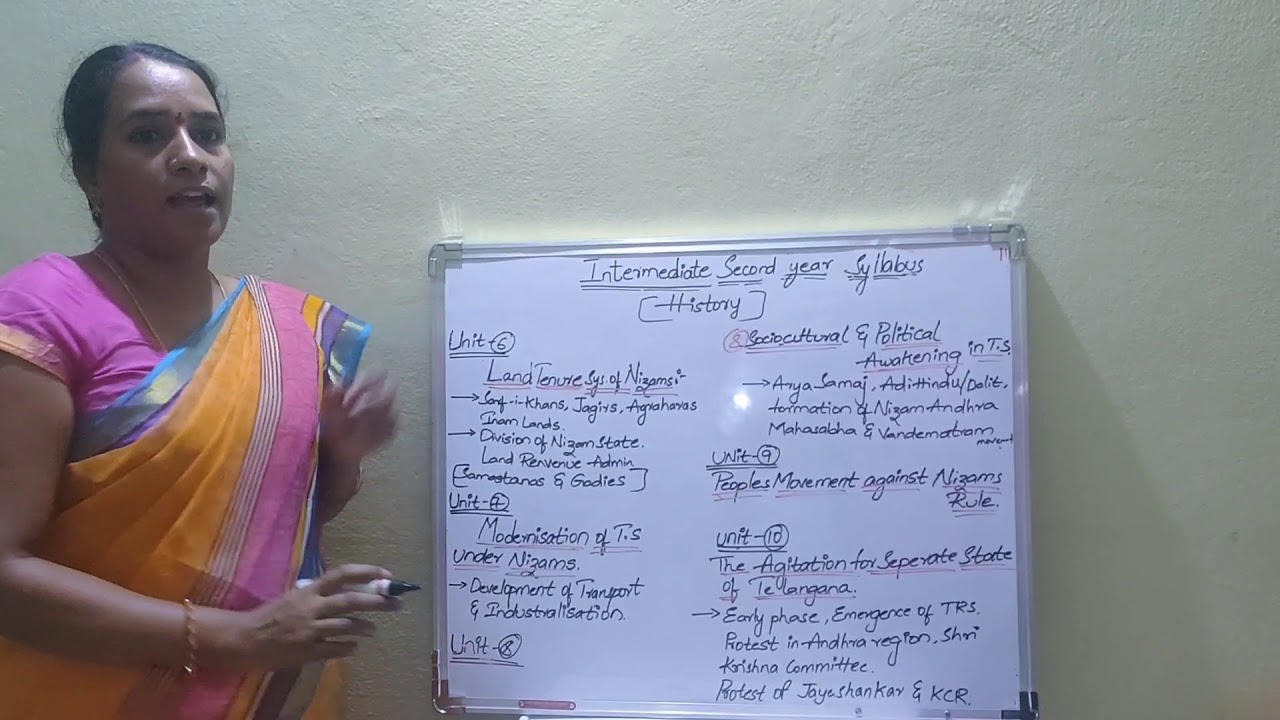 Intermediate Second year Syllabus
[History]
Unit-6
Land Tenure Sys. of Nizams:-
→ Sarf-i-Khans, Jagirs, Agraharas
Inam Lands.
→ Division of Nizam State.
Land Renvenue Admin
[Samastanas & Gadies]
Unit-7
Modernisation of T.S
under Nizams.
→ Development of Transport
& Industralisation.
Unit-8
8 Sociocultural & Political
Awakening in T.S.
→ Arya Samaj, Adi-Hindu/Dalit,
formation of Nizam Andhra
Mahasabha & Vandematram
movement
UNit-9
Peoples Movement against Nizams
Rule.
unit-10
The Agitation for Seperate State
of Telangana.
→ Early phase, Emergence of TRS.
Protest in Andhra region, Shri
Krishna Committee.
Protest of Jayashankar & KCR.